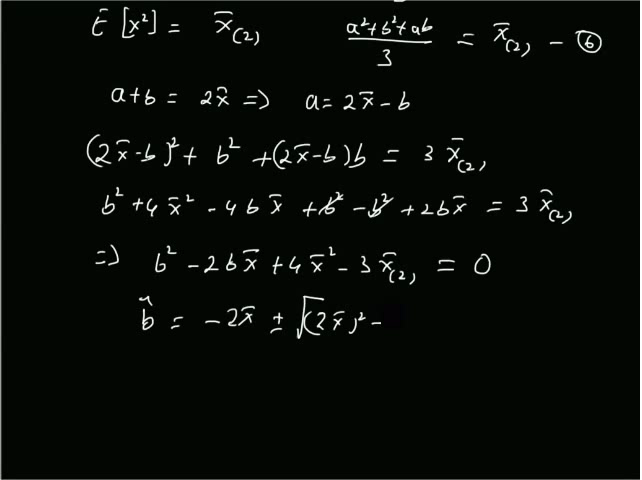 E[x²] = x̄₍₂₎   (a²+b²+ab)/3 = x̄₍₂₎ – ⑥
a+b = 2x̄ => a = 2x̄ – b
(2x̄-b)² + b² + (2x̄-b)b = 3 x̄₍₂₎
b² + 4x̄² - 4bx̄ + b² - b² + 2bx̄ = 3 x̄₍₂₎
=> b² - 2bx̄ + 4x̄² - 3x̄₍₂₎ = 0
b̂ = -2x̄ ± √(2x̄)² -